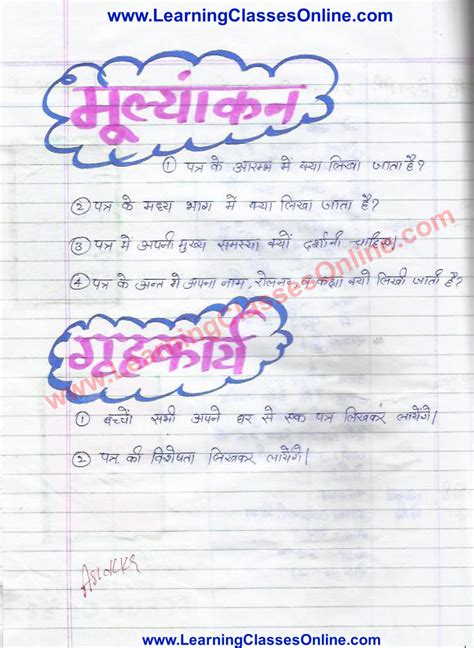 www.LearningClassesOnline.com
मूल्यांकन
① पत्र के आरम्भ में क्या लिखा जाता है?
② पत्र के मध्य भाग में क्या लिखा जाता है?
③ पत्र में अपनी मुख्य समस्या क्यों दर्शानी चाहिए।
④ पत्र के अन्त में अपना नाम, रोलनं० व कक्षा क्यों लिखी जाती है?
www.LearningClassesOnline.com
गृहकार्य
① बच्चों सभी अपने घर से एक पत्र लिखकर लायेंगे।
② पत्र की विशेषता लिखकर लायेंगे।
www.LearningClassesOnline.com